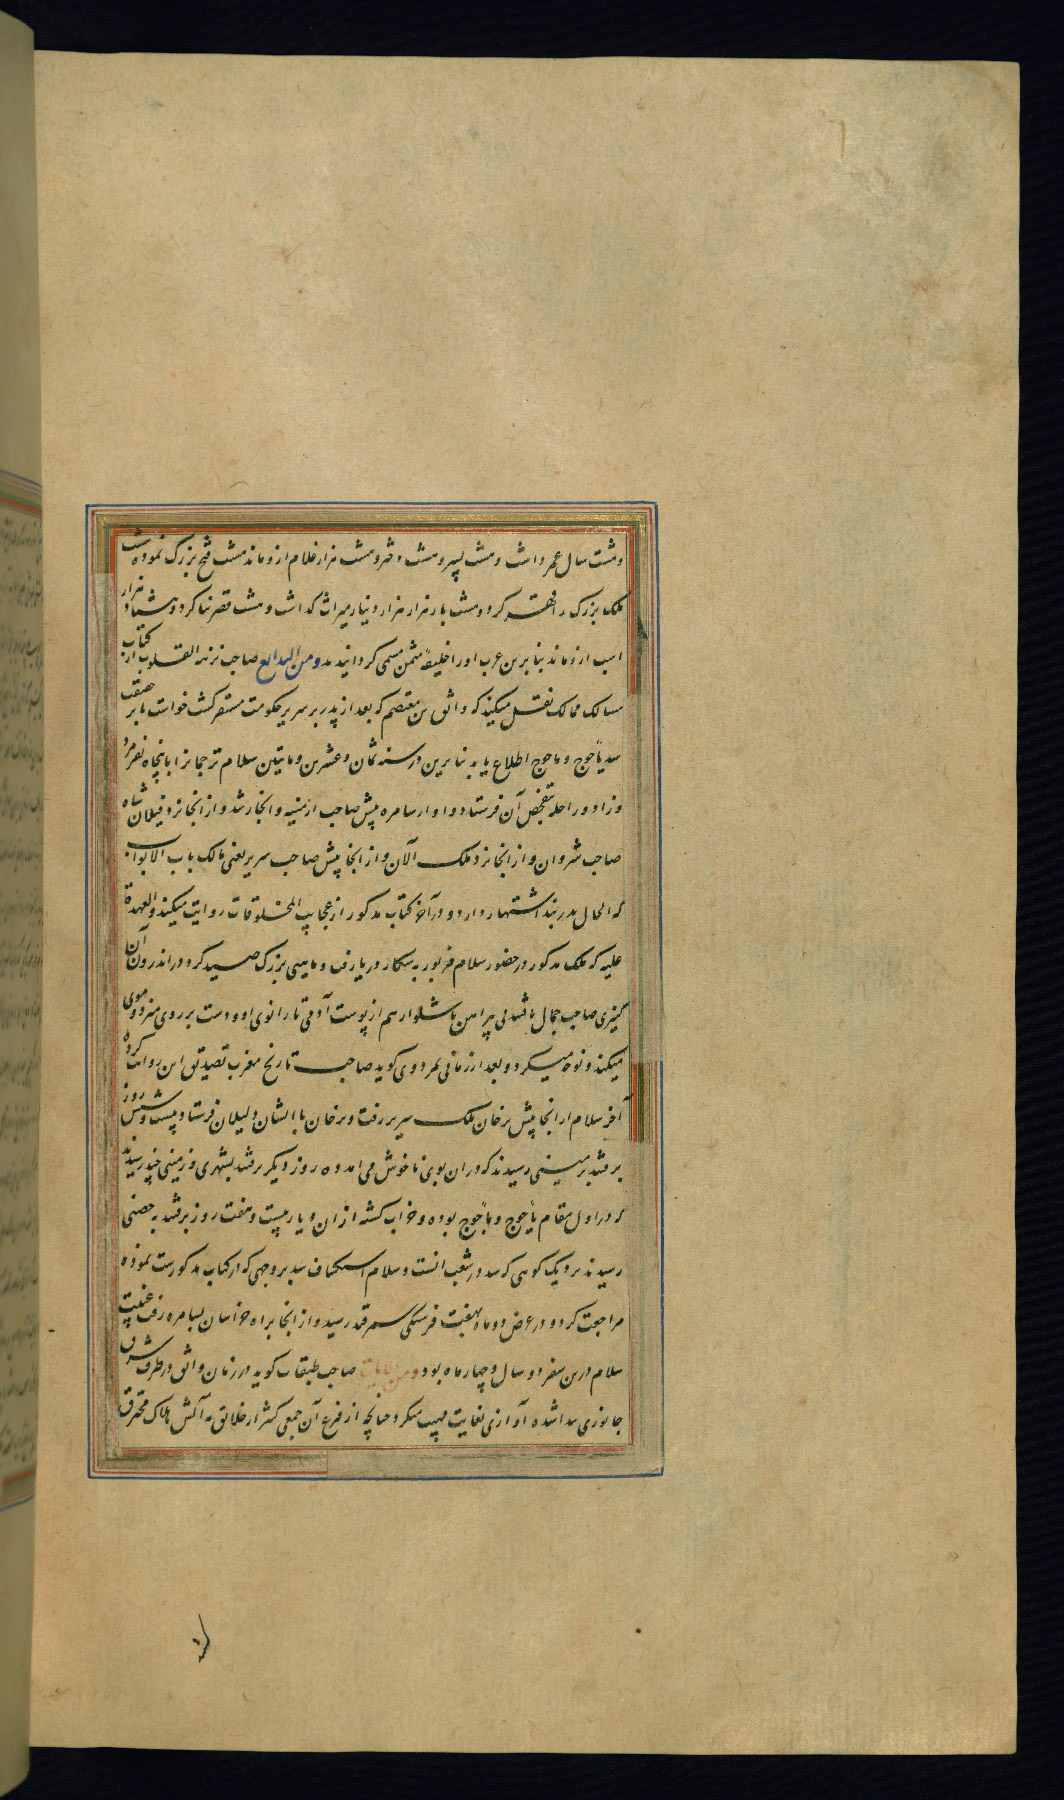 وهشت سال عمر داشت و هشت پسر و هشت دختر و هشت هزار غلام ازو ماند هشت فتح بزرگ نموده هشت
ملک بزرگ را قهر کرد و هشت بار هزار هزار دینار میراث گذاشت و هشت قصر بنا کرد و هشتاد هزار
اسب ازو ماند بنابرین عرب او را خلیفهٔ مثمن مسمی گردانیدند ومن البدایع صاحب نزهة القلوب از کتاب
مسالک ممالک نقل میکند که واثق بن معتصم که بعد از پدر بر سریر حکومت مستقر گشت خواست تا بر حقیقت
سد یأجوج و مأجوج اطلاع یابد بنابرین در سنه ثمان و عشرین و مایتین سلام ترجمانرا با پنجاه نفر مرد
و زاد و راحله بتفحص آن فرستاد و او از سامره پیش صاحب ارمنیه و انجا رشد و از انجا نزد فیلان شاه
صاحب شروان و از انجا نزد ملک الآن و از انجا پیش صاحب سریر یعنی مالک باب الابواب
که الحال بدربند اشتهار دارد و در آخر کتاب مذکور از عجایب المخلوقات روایت میکند والعهدة
علیه که ملک مذکور در حضور سلام مزبور به شکار دریا رفت و ماهیی بزرگ صید کرد در اندرون آن
کنیزی صاحب جمال یافتند بی پیراهن با شلوار هم از پوست آدمی تا زانوی او و دست بر روی میزد و موی
میکند و نوحه میکرد و بعد از زمانی بمرد و گوید صاحب تاریخ مغرب تصدیق این روایت کرده
آخر سلام از انجا پیش برخان ملک سریر رفت و برخان با ایشان دلیلان فرستاد بیست و شش روز
برفتند بزمینی رسیدند که دران بوی ناخوش می آمد و ده روز دیگر برفتند بشهری و زمینی چند رسیدند
که در اول مقام یأجوج و مأجوج بوده و خراب گشته ازان دیار بیست و هفت روز برفتند به حصنی
رسیدند نزدیک کوهی که سد در شعب انست و سلام استکشاف سد بر وجهی که در کتاب مذکورست نموده
مراجعت کرد و در عرض دو ماه بهفت فرسنگی سمرقند رسید و از انجا براه خراسان بسامره رفت غیبت
سلام درین سفر دو سال و چهار ماه بود و من صاحب طبقات گوید در زمان واثق در طرف شرق
جانوری پیدا شده آوازی بغایت مهیب میکرد چنانچه از فزع آن جمعی کثیر از خلایق هلاک